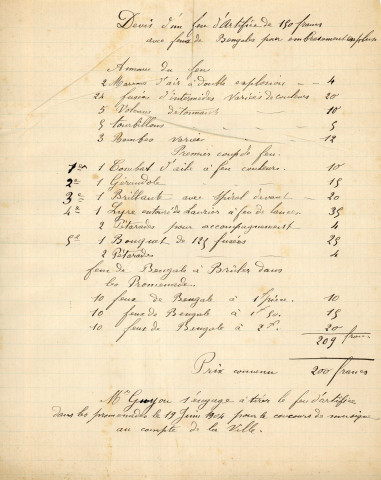 Devis d'un feu d'Artifice de 150 francs
avec feux de Bengales pour embrasement en plus
Annonce du feu
2 Marrons d'air à double explosion - 4
24 fusées d'intermèdes variés de couleurs 20
5 Volcans détonnants 10
5 tourbillons 5
3 Bombes variés - 12
Premier coup de feu.
1er 1 Combat d'aile à feu couleur. 10
2e 1 Girandole 15
3e 1 Brillante avec spirol devant - 20
4e 1 Lyre entourée de Laurier à feu de lances 35
2 Pétarades pour accompagnement - 4
5e 1 Bouquet de 125 fusées 25
2 Pétarades 4
feux de Bengale à Brûler dans
les Promenades.
10 feux de Bengale à 1f pièce. 10
10 feux de Bengale à 1f 50. 15
10 feux de Bengale à 2f. 20
209 francs
Prix convenu 200 francs
Mr Guyou s'engage à tirer le feu d'artifice
dans les promenades le 19 Juin 1904 pour le concours de musique
au compte de la Ville.